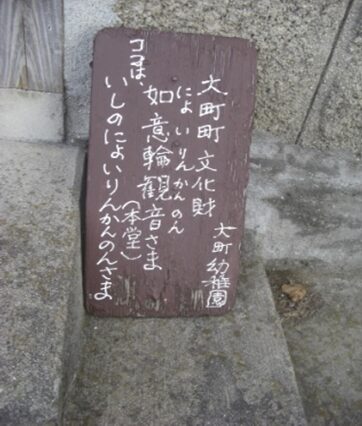 大町町文化財
大町幼稚園
にょいりんかんのん
如意輪観音さま
(本堂)
ココは、
いしのにょいりんかんのんさま